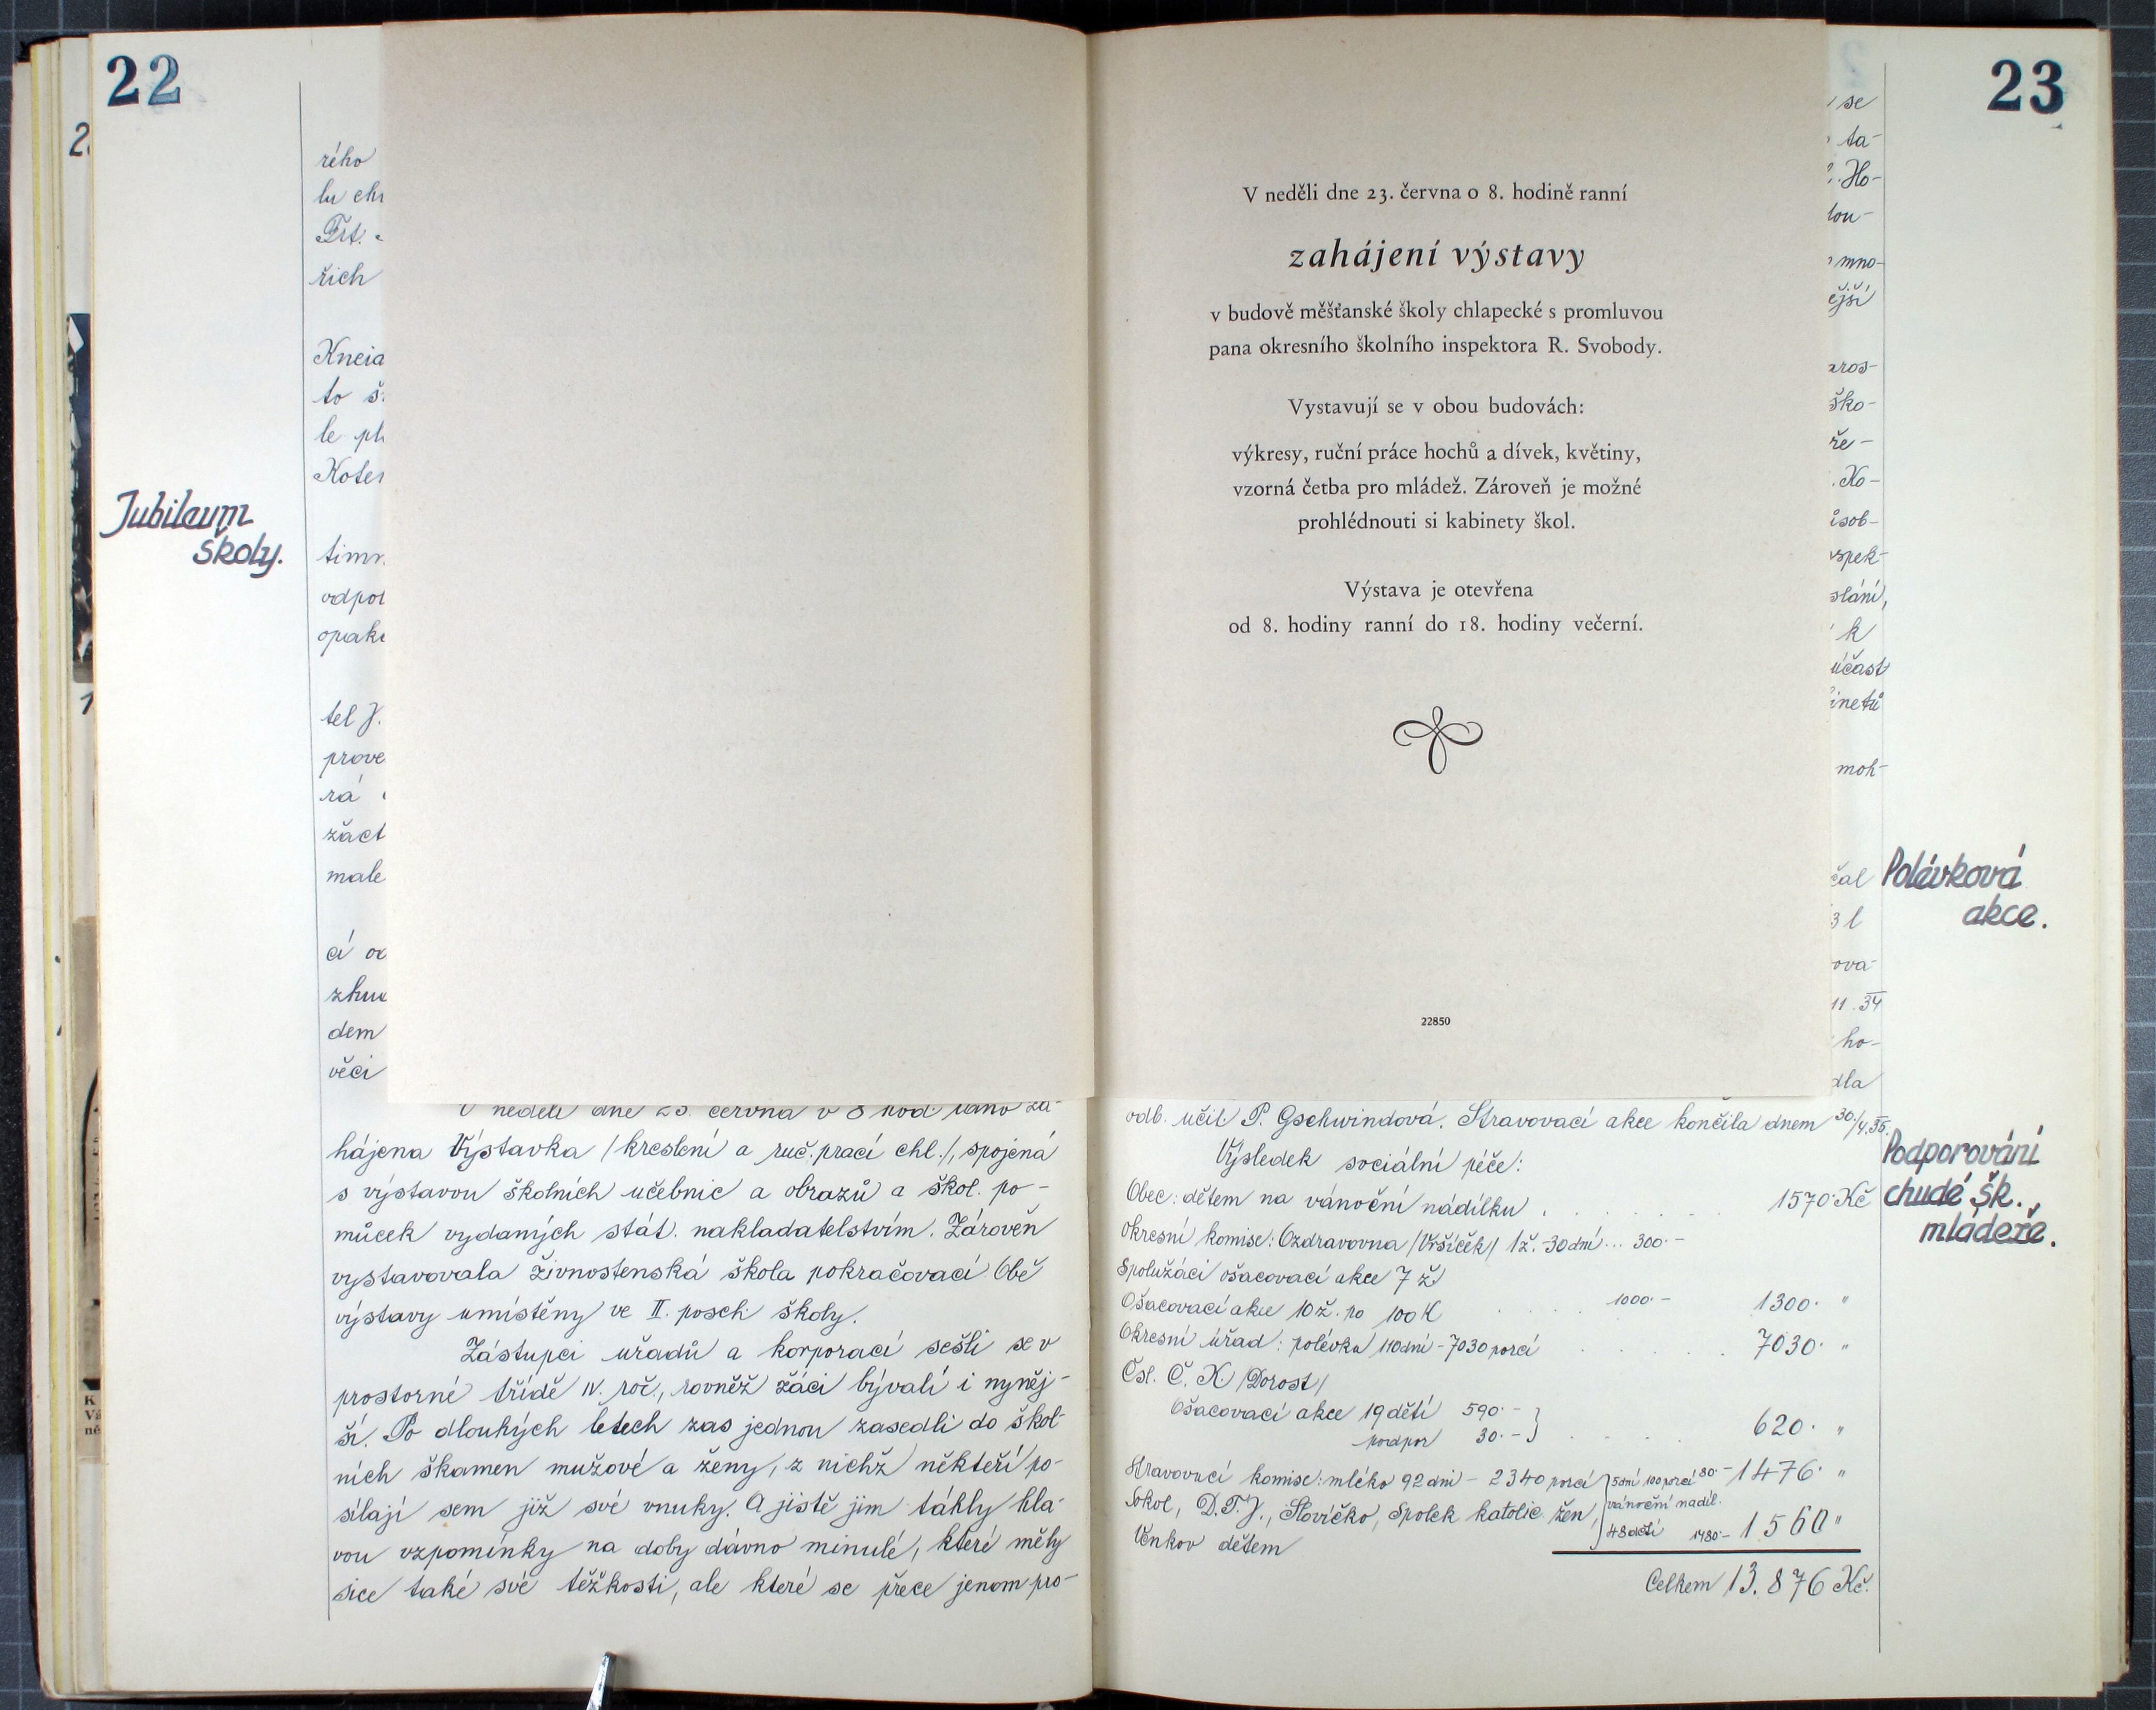 22
rého
lu chr
Frt.
řich
Kneia
to š
le pl
Koter
Jubileum
školy.
timn
odpol
opake
tel J.
prove
rá
žáct
male
cí od
zhud
dem
věci
V neděli dne 23. června v 8 hod. ráno za-
hájena Výstavka /kreslení a ruč. prací chl./, spojená
s výstavou školních učebnic a obrazů a škol. po-
můcek vydaných stát. nakladatelstvím. Zároveň
vystavovala živnostenská škola pokračovací Obě
výstavy umístěny ve II. posch. školy.
Zástupci úřadů a korporací sešli se v
prostorné třídě IV. roč., rovněž žáci bývalí i nyněj-
ší. Po dlouhých letech zas jednou zasedli do škol-
ních škamen mužové a ženy, z nichž někteří po-
sílají sem již své vnuky. A jistě jim táhly hla-
vou vzpomínky na doby dávno minulé, které měly
sice také své těžkosti, ale které se přece jenom pro-
23
V neděli dne 23. června o 8. hodině ranní
zahájení výstavy
v budově měšťanské školy chlapecké s promluvou
pana okresního školního inspektora R. Svobody.
Vystavují se v obou budovách:
výkresy, ruční práce hochů a dívek, květiny,
vzorná četba pro mládež. Zároveň je možné
prohlédnouti si kabinety škol.
Výstava je otevřena
od 8. hodiny ranní do 18. hodiny večerní.
22850
se
ta-
Ho-
lou-
mno-
ější
aros-
ško-
ře-
Ko-
ůsob-
spek-
slání,
k
účast
inetů
moh-
čal
3 l
ova-
11. 34
ho-
dla
Polévková
akce.
odb. učit. P. Gschwindová. Stravovací akce končila dnem 30./4.35.
Výsledek sociální péče:
Podporování
chudé šk.
mládeže.
Obec: dětem na vánoční nádílku . . . . . . 1570 Kč
Okresní komise: Ozdravovna /Vršíček/ 1 ž. - 30 dní ... 300.-
Spolužáci ošacovací akce 7 ž.
Ošacovací akce 10 ž. po 100 K . . . . 1000.- 1300. "
Okresní úřad: polévka 110 dní - 7030 porcí . . . . 7030. "
Čsl. Č. K. /Dorost/
Ošacovací akce 19 dětí 590.- }
podpor 30.- } . . . . 620. "
Stravovací komise: mléko 92 dní - 2340 porcí } 5 dní 100 porcí 80.- 1476. "
Sokol, D.T.J., Slovíčko, Spolek katolic. žen, } vánoční nadíl.
Venkov dětem } 48 dětí 1480.- 1560 "
Celkem 13.876 Kč.